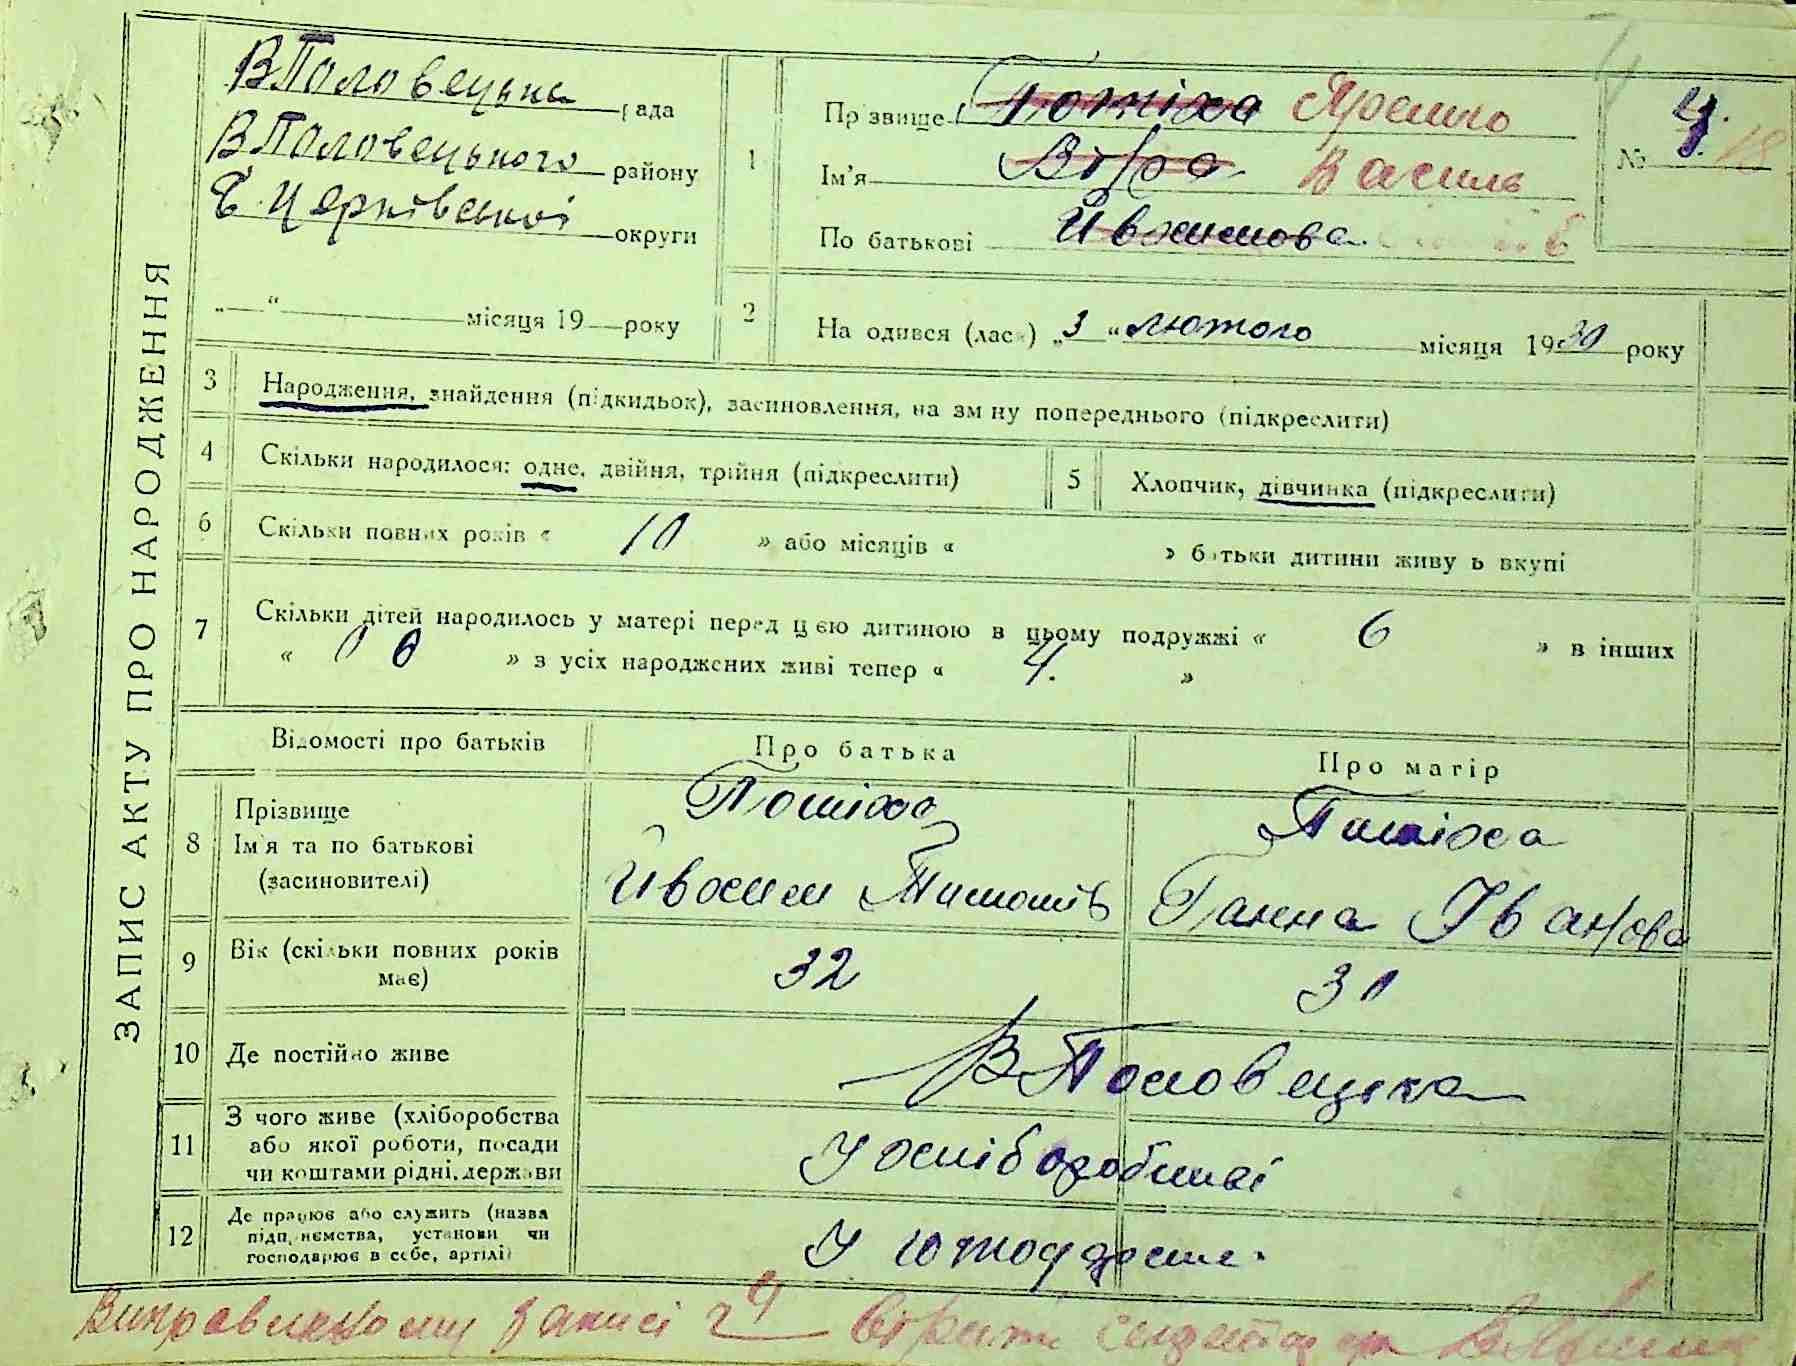 ЗАПИС АКТУ ПРО НАРОДЖЕННЯ
ВПоловецька рада
ВПоловецького району
Б. Церківської округи
„ “ місяця 19 року
1
Прізвище Потіха Ярошко
Ім'я Віра Василь
По батькові Йвхимова
№ 4. 18
2
На одився (лася) „3 “ лютого місяця 1930 року
3 Народження, знайдення (підкидьок), засиновлення, на зміну попереднього (підкреслити)
4 Скільки народилося: одне, двійня, трійня (підкреслити)
5 Хлопчик, дівчинка (підкреслити)
6 Скільки повних років « 10 » або місяців « » батьки дитини живуть вкупі
7 Скільки дітей народилось у матері перед цією дитиною в цьому подружжі « 6 » в інших
« 0 » з усіх народжених живі тепер « 4. »
Відомості про батьків
Про батька
Про матір
8 Прізвище
Ім'я та по батькові
(засиновителі)
Потіха
Йвхим Тимошів
Потіха
Ганна Іванова
9 Вік (скільки повних років
має)
32
30
10 Де постійно живе
ВПоловецька
11 З чого живе (хліборобства
або якої роботи, посади
чи коштами рідні, держави
У хліборобстві
12 Де працює або служить (назва
підприємства, установи чи
господарює в себе, артілі)
У
Виправленому записі 4 вірити